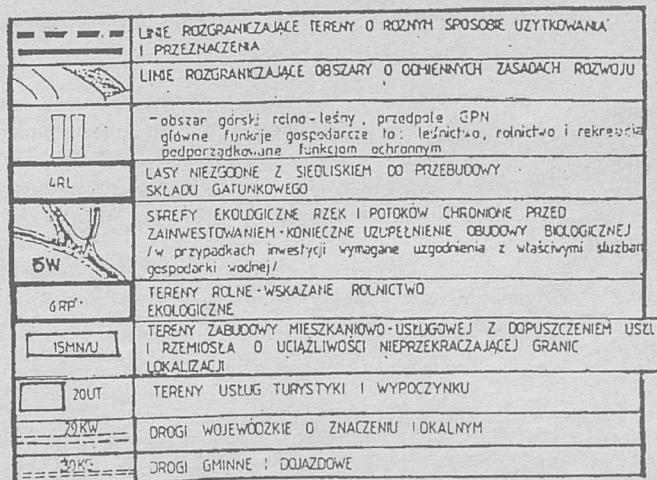 LINIE ROZGRANICZAJĄCE TERENY O RÓŻNYM SPOSOBIE UŻYTKOWANIA
I PRZEZNACZENIA
LINIE ROZGRANICZAJĄCE OBSZARY O ODMIENNYCH ZASADACH ROZWOJU
- obszar górski rolno-leśny, przedpole GPN
główne funkcje gospodarcze to: leśnictwo, rolnictwo i rekreacja
podporządkowane funkcjom ochronnym
4RL
LASY NIEZGODNE Z SIEDLISKIEM DO PRZEBUDOWY
SKŁADU GATUNKOWEGO
5W
STREFY EKOLOGICZNE RZEK I POTOKÓW CHRONIONE PRZED
ZAINWESTOWANIEM - KONIECZNE UZUPEŁNIENIE OBUDOWY BIOLOGICZNEJ
/w przypadkach inwestycji wymagane uzgodnienia z właściwymi służbam
gospodarki wodnej/
6RP
TERENY ROLNE - WSKAZANE ROLNICTWO
EKOLOGICZNE
15MN/U
TERENY ZABUDOWY MIESZKANIOWO-USŁUGOWEJ Z DOPUSZCZENIEM USŁU
I RZEMIOSŁA O UCIĄŻLIWOŚCI NIEPRZEKRACZAJĄCEJ GRANIC
LOKALIZACJI
20UT
TERENY USŁUG TURYSTYKI I WYPOCZYNKU
29KW
DROGI WOJEWÓDZKIE O ZNACZENIU LOKALNYM
30KG
DROGI GMINNE I DOJAZDOWE